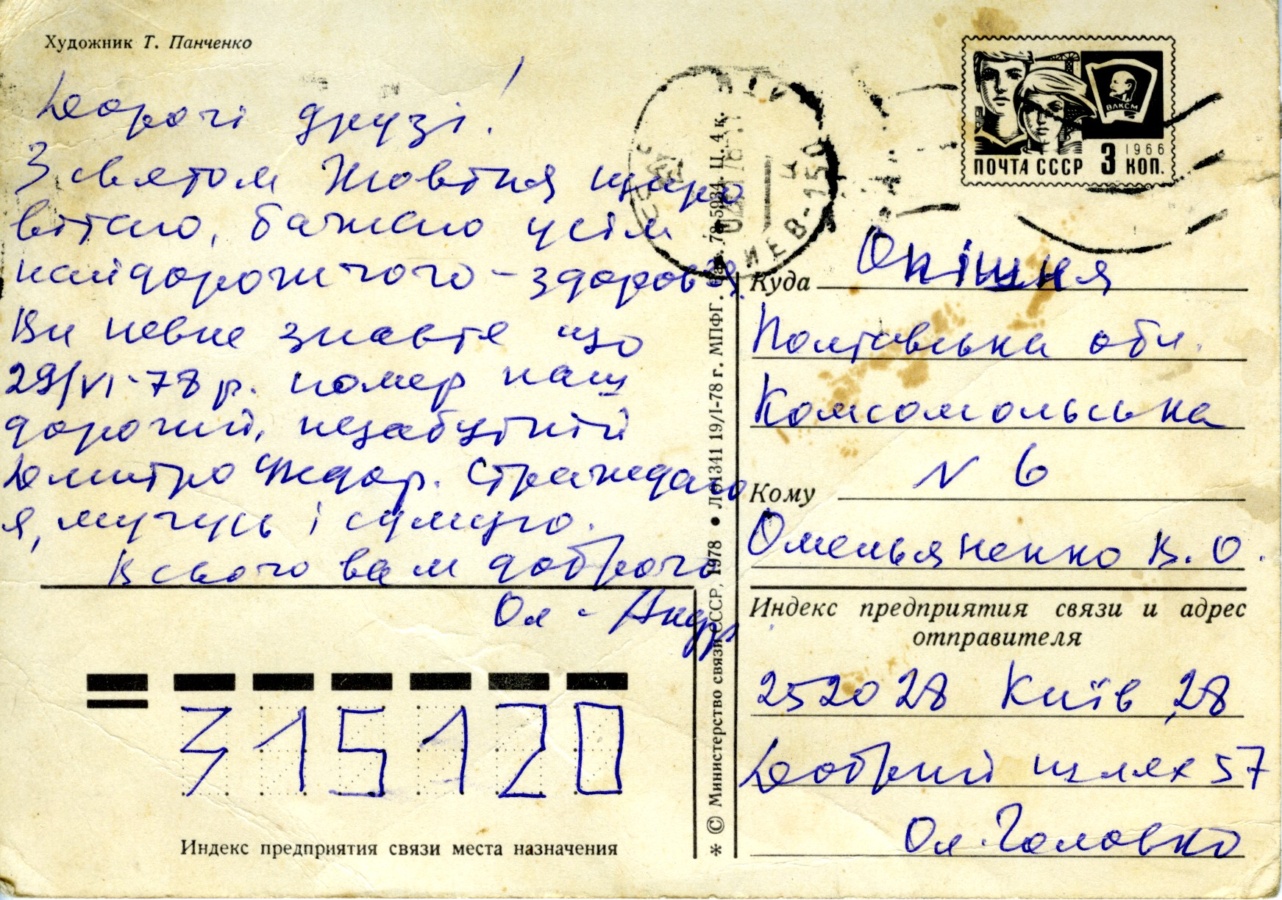 Художник Т. Панченко
Дорогі друзі!
З святом Жовтня щиро
вітаю, бажаю усім
найдорожчого - здоров'я.
Ви певне знаєте що
29/VI-78 р. помер наш
дорогий, незабутній
Дмитро Федор. Страждаю
я, мучусь і сумую.
Всього вам доброго
Ол - Андр
315120
Индекс предприятия связи места назначения
* © Министерство связи СССР, 1978 • 19/I-78 г. МПФГ. Ц. 4 к.
ИЕВ-150
ПОЧТА СССР 3 КОП.
1966
ВЛКСМ
Куда Опішня
Полтавська обл.
Комсомольська
N 6
Кому
Омельяненко В. О.
Индекс предприятия связи и адрес
отправителя
252028 Київ 28
Добрий шлях 57
Ол. Головко